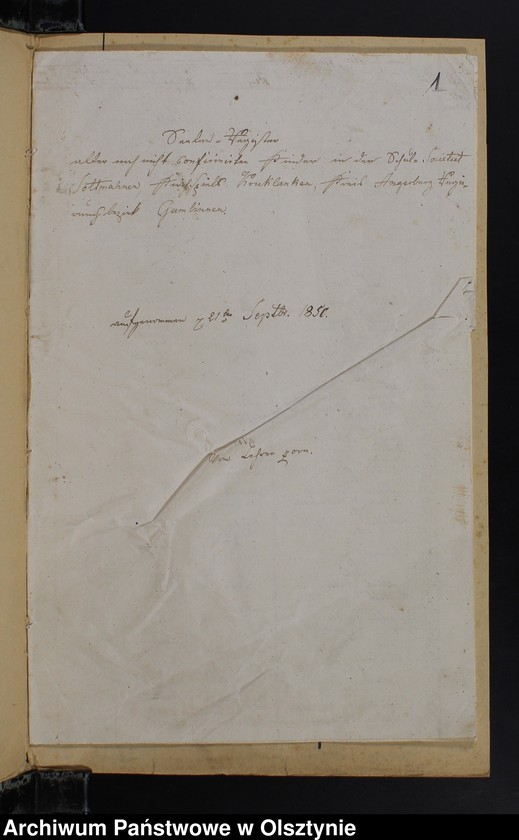 1
Seelen-Register
aller noch nicht confirmirten Kinder in der Schul-Societaet
Sottmahnen Kirchspiels Kruklanken, Kreis Angerburg Regie-
rungsbezirk Gumbinnen.
aufgenommen 21ten Septbr. 1850.
Lehrer
Archiwum Państwowe w Olsztynie